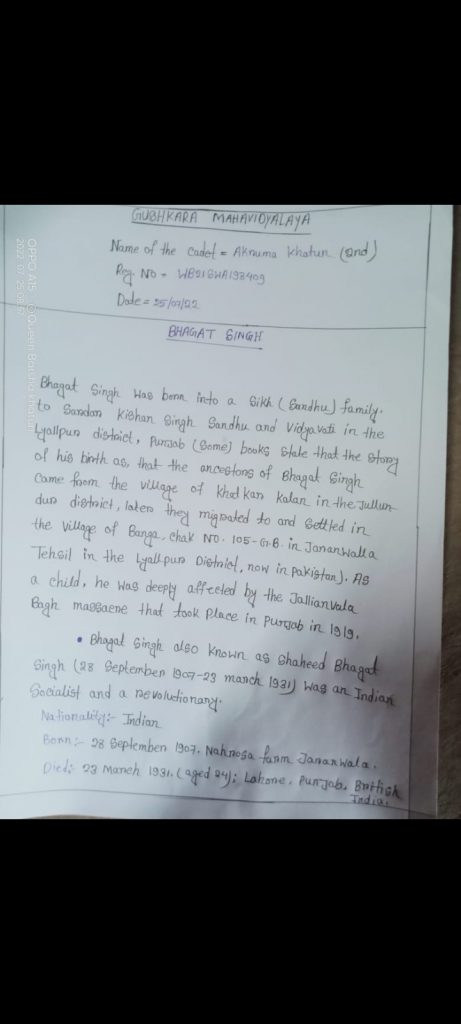 GUSHKARA MAHAVIDYALAYA
Name of the cadet = Aknuma Khatun (2nd)
Reg. No = WB21SWA198409
Date = 25/07/22
BHAGAT SINGH
Bhagat Singh was born into a Sikh (Sandhu) family.
to Sardar Kishan Singh Sandhu and Vidyavati in the
Lyallpur district, Punjab (Some) books state that the story
of his birth as, that the ancestors of Bhagat Singh
came from the village of Khatkar Kalan in the Jullun-
dur district, later they migrated to and settled in
the village of Banga, chak No. 105-G.B. in Jaranwalla
Tehsil in the Lyallpur District, now in pakistan). As
a child, he was deeply affected by the Jallianvala
Bagh massacre that took place in Punjab in 1919.
• Bhagat Singh also known as shaheed Bhagat
Singh (28 September 1907-23 march 1931) was an Indian
Socialist and a revolutionary.
Nationality:- Indian
Born:- 28 September 1907. farm Jaranwala.
Died:- 23 March 1931. (aged 24); Lahore, Punjab, British
India.
OPPO A15
2022.07.25